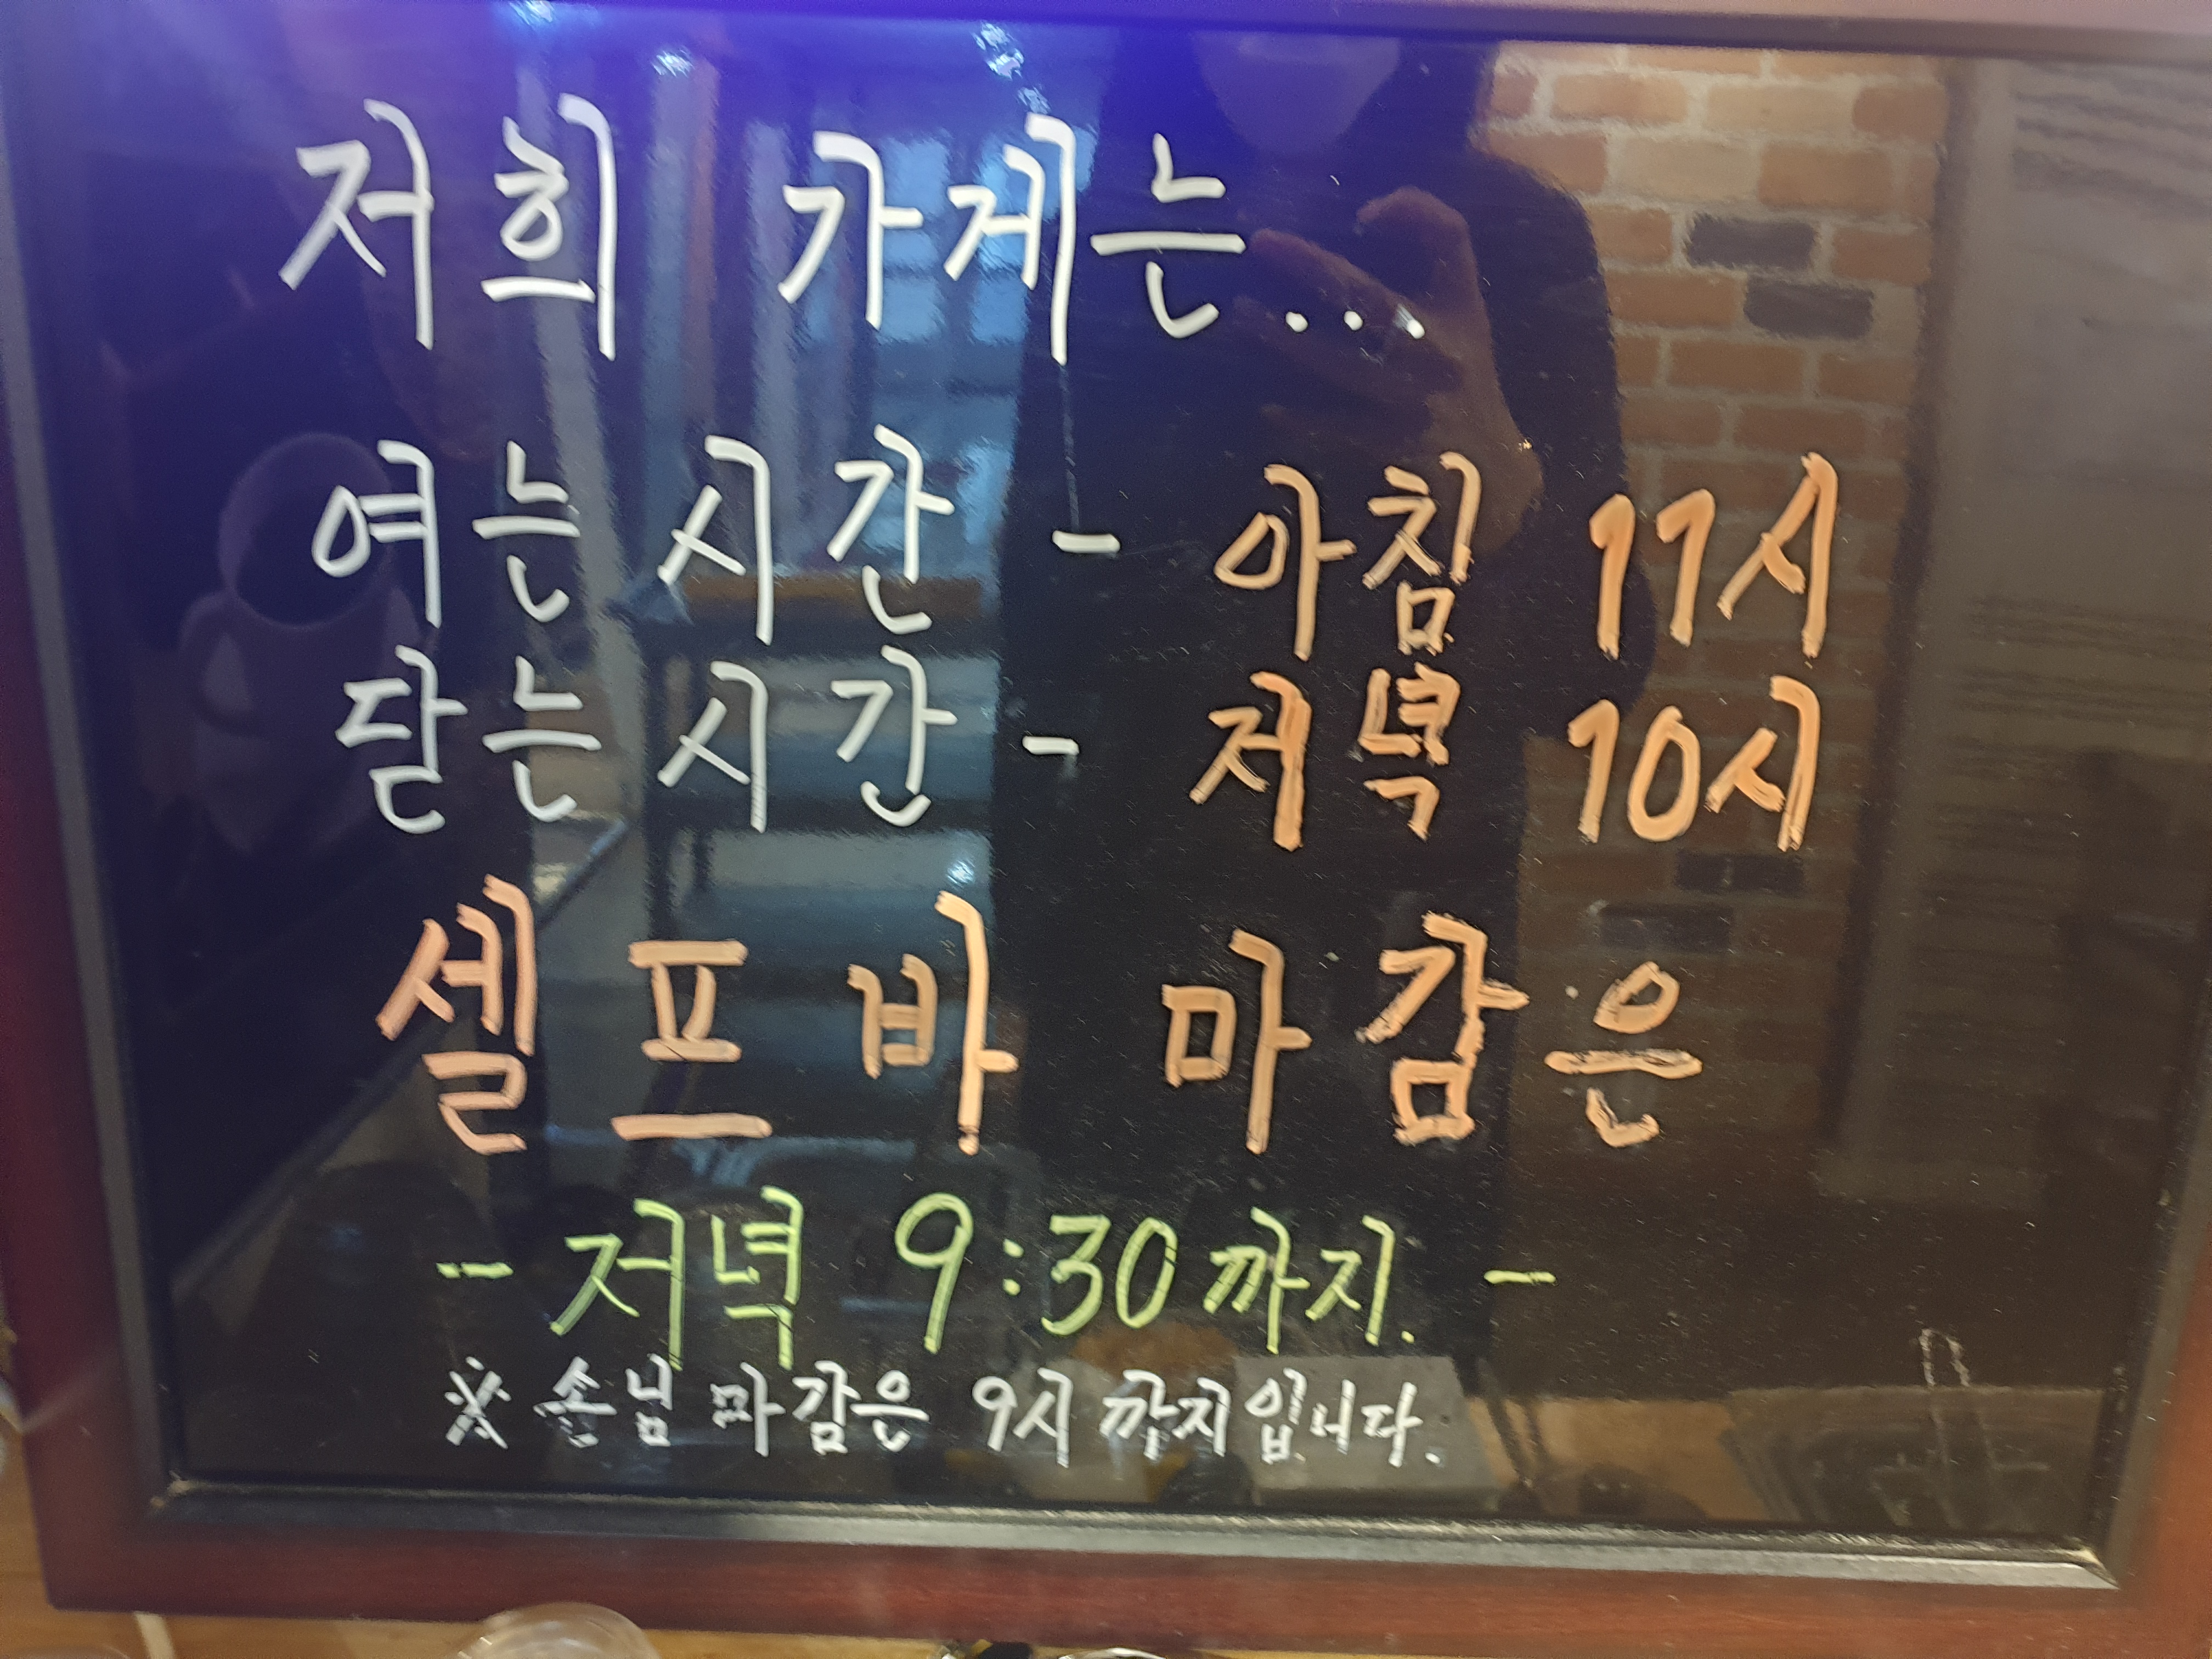 저희 가게는...
여는 시간 - 아침 11시
닫는 시간 - 저녁 10시
셀프바 마감은
- 저녁 9:30까지. -
※ 손님 마감은 9시 까지입니다.